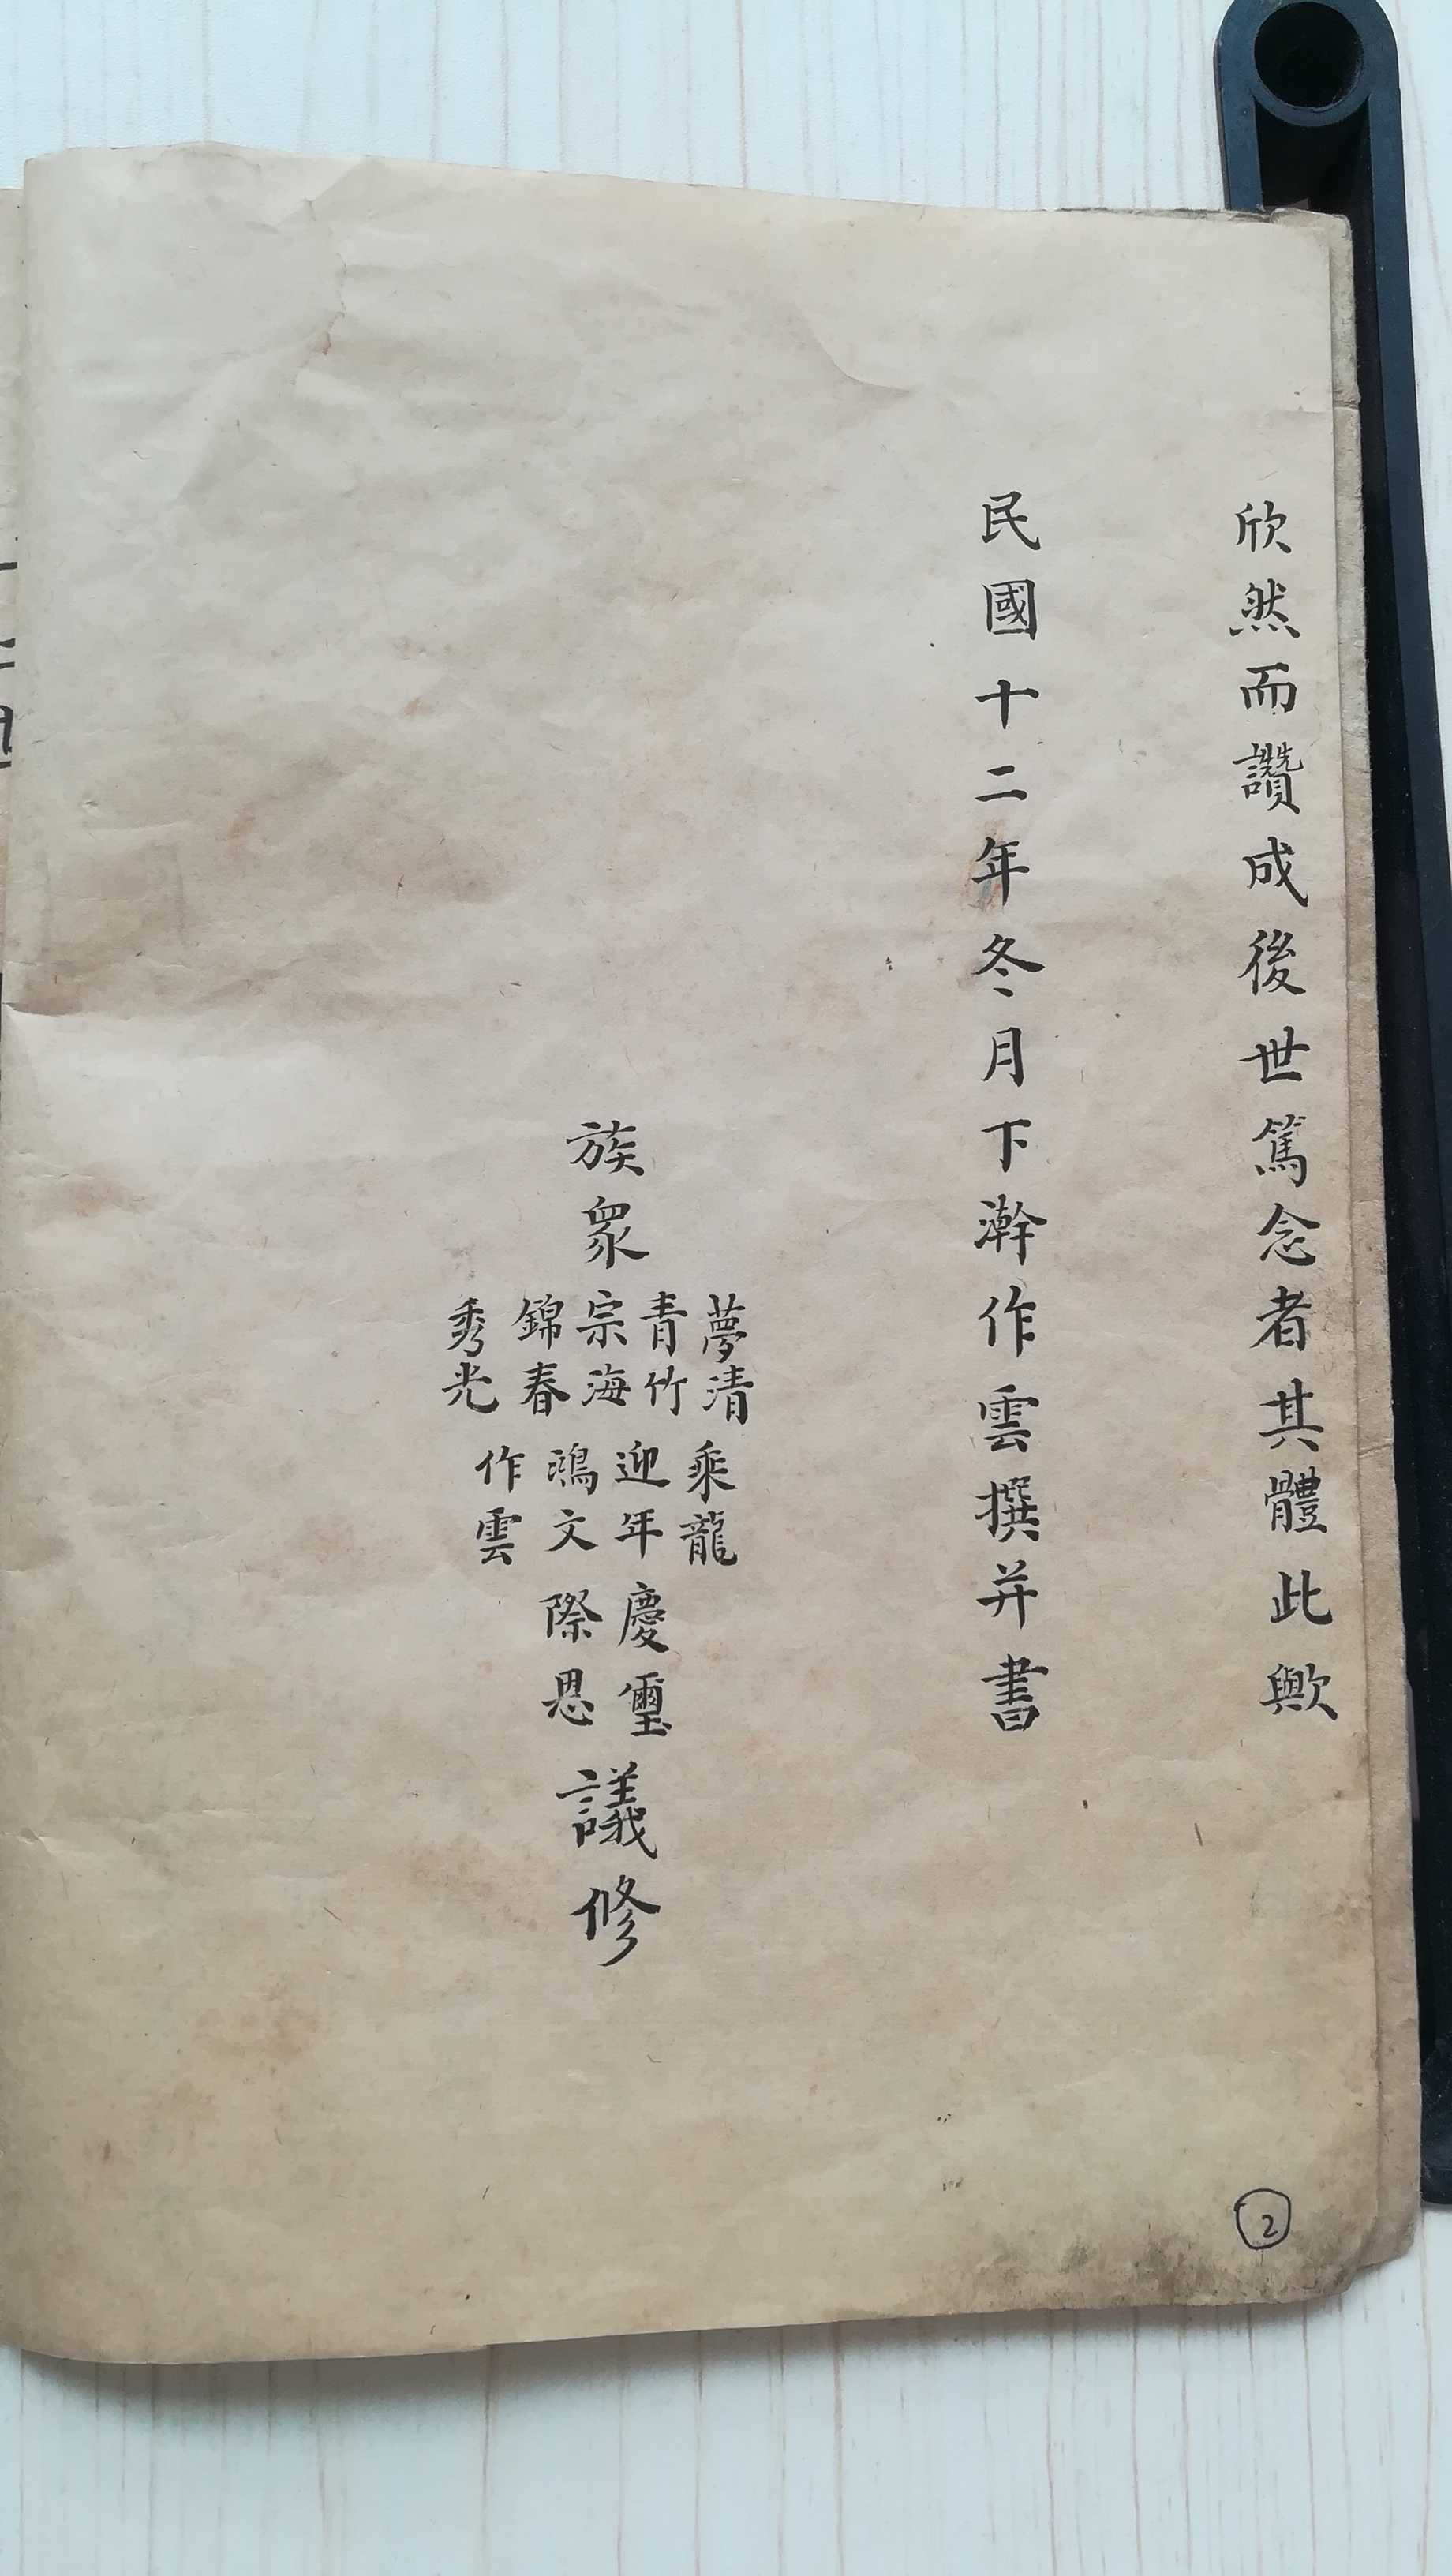 欣然而讚成後世篤念者其體此歟
民國十二年冬月下澣作雲撰并書
族眾
夢清
青竹
宗海
錦春
秀光
乘龍
迎年
鴻文
作雲
慶璽
際恩
議修
2